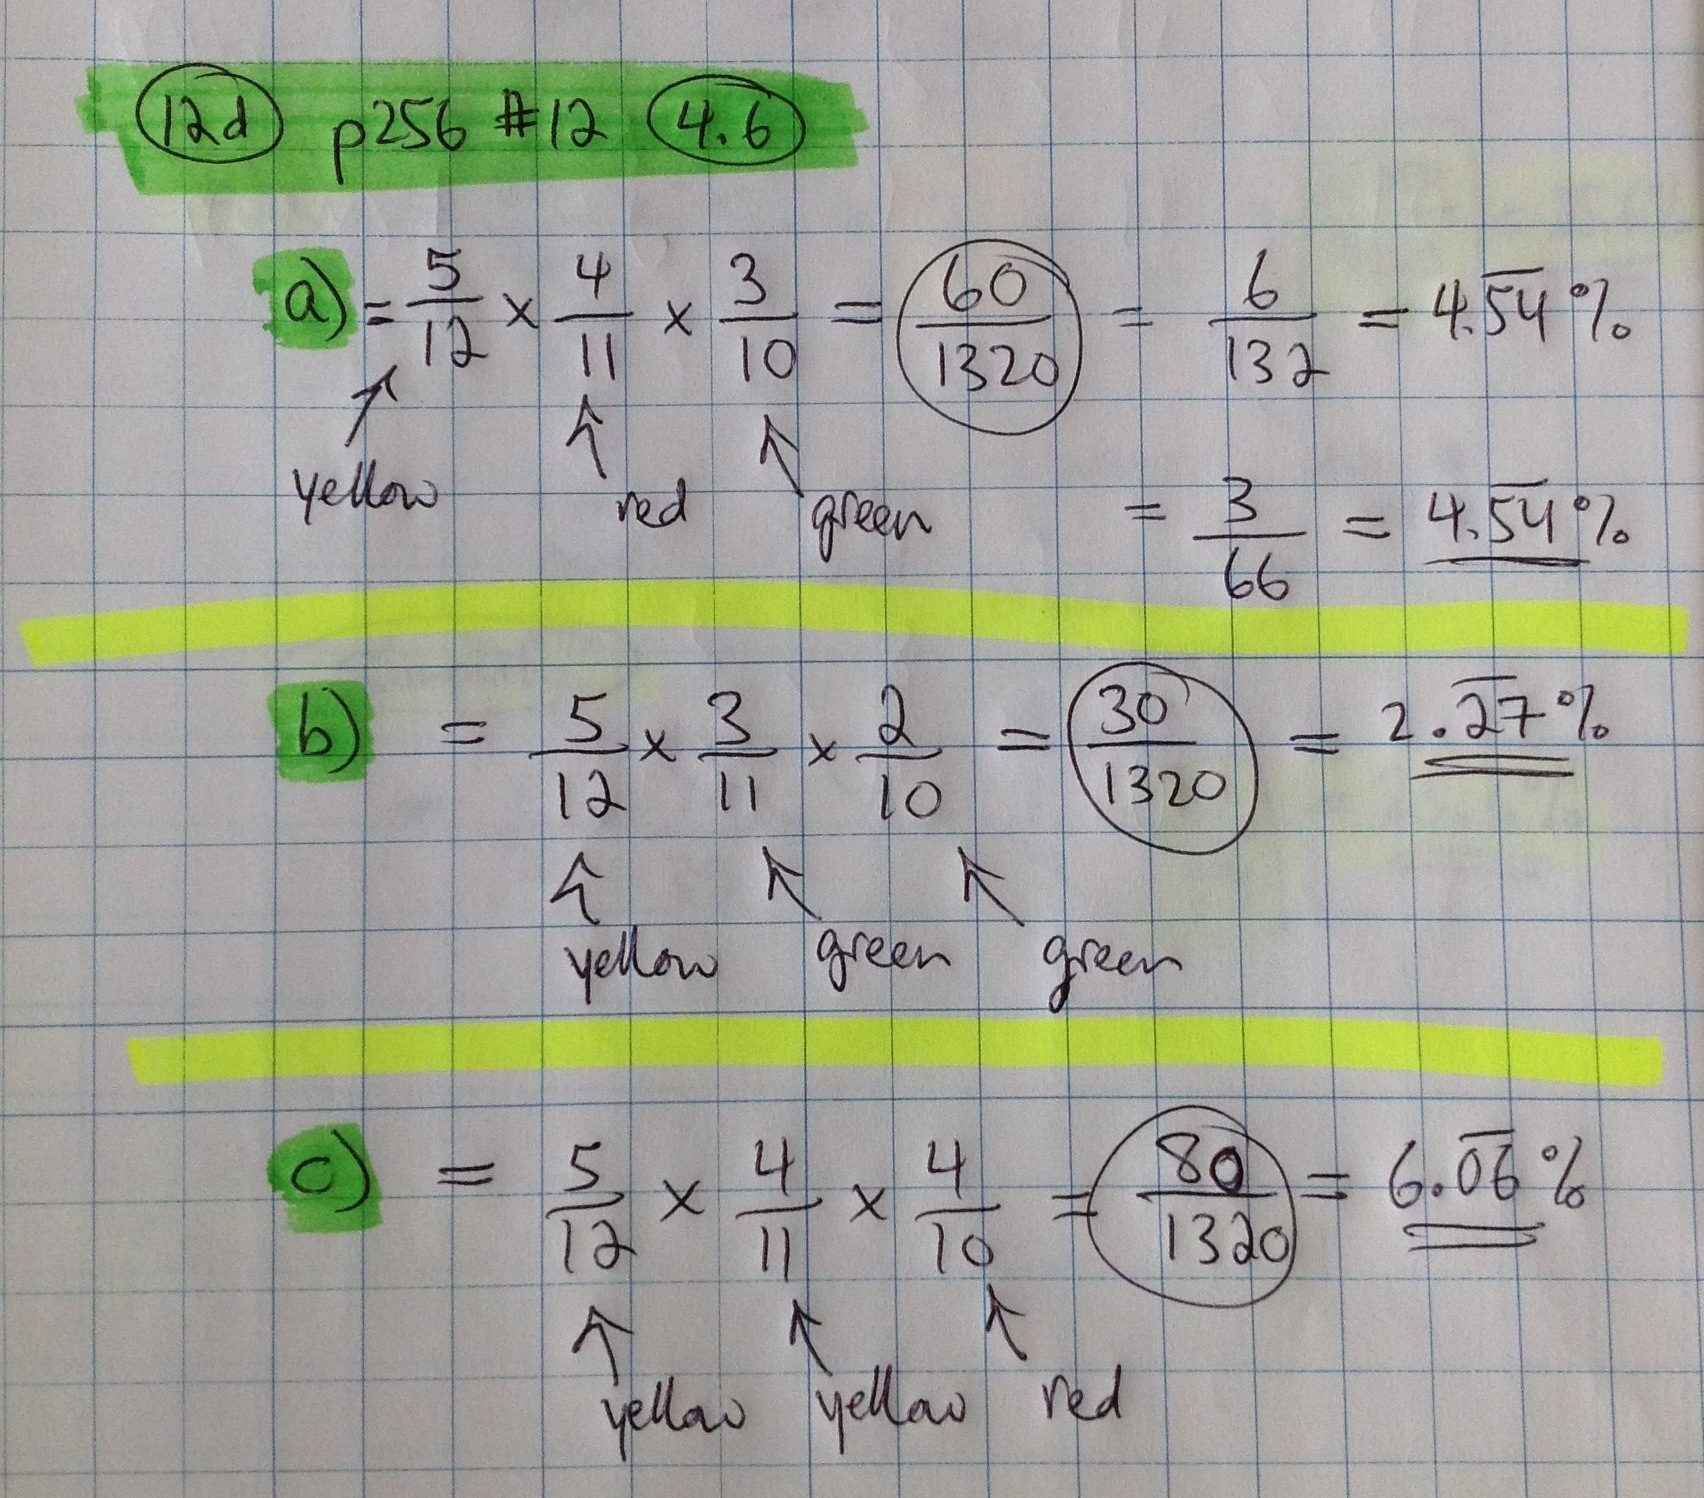 12d p256 #12 4.6
a) = 5/12 × 4/11 × 3/10 = 60/1320 = 6/132 = 4.5̅4̅%
yellow red green = 3/66 = 4.5̅4̅%
b) = 5/12 × 3/11 × 2/10 = 30/1320 = 2.2̅7̅%
yellow green green
c) = 5/12 × 4/11 × 4/10 = 80/1320 = 6.0̅6̅%
yellow yellow red